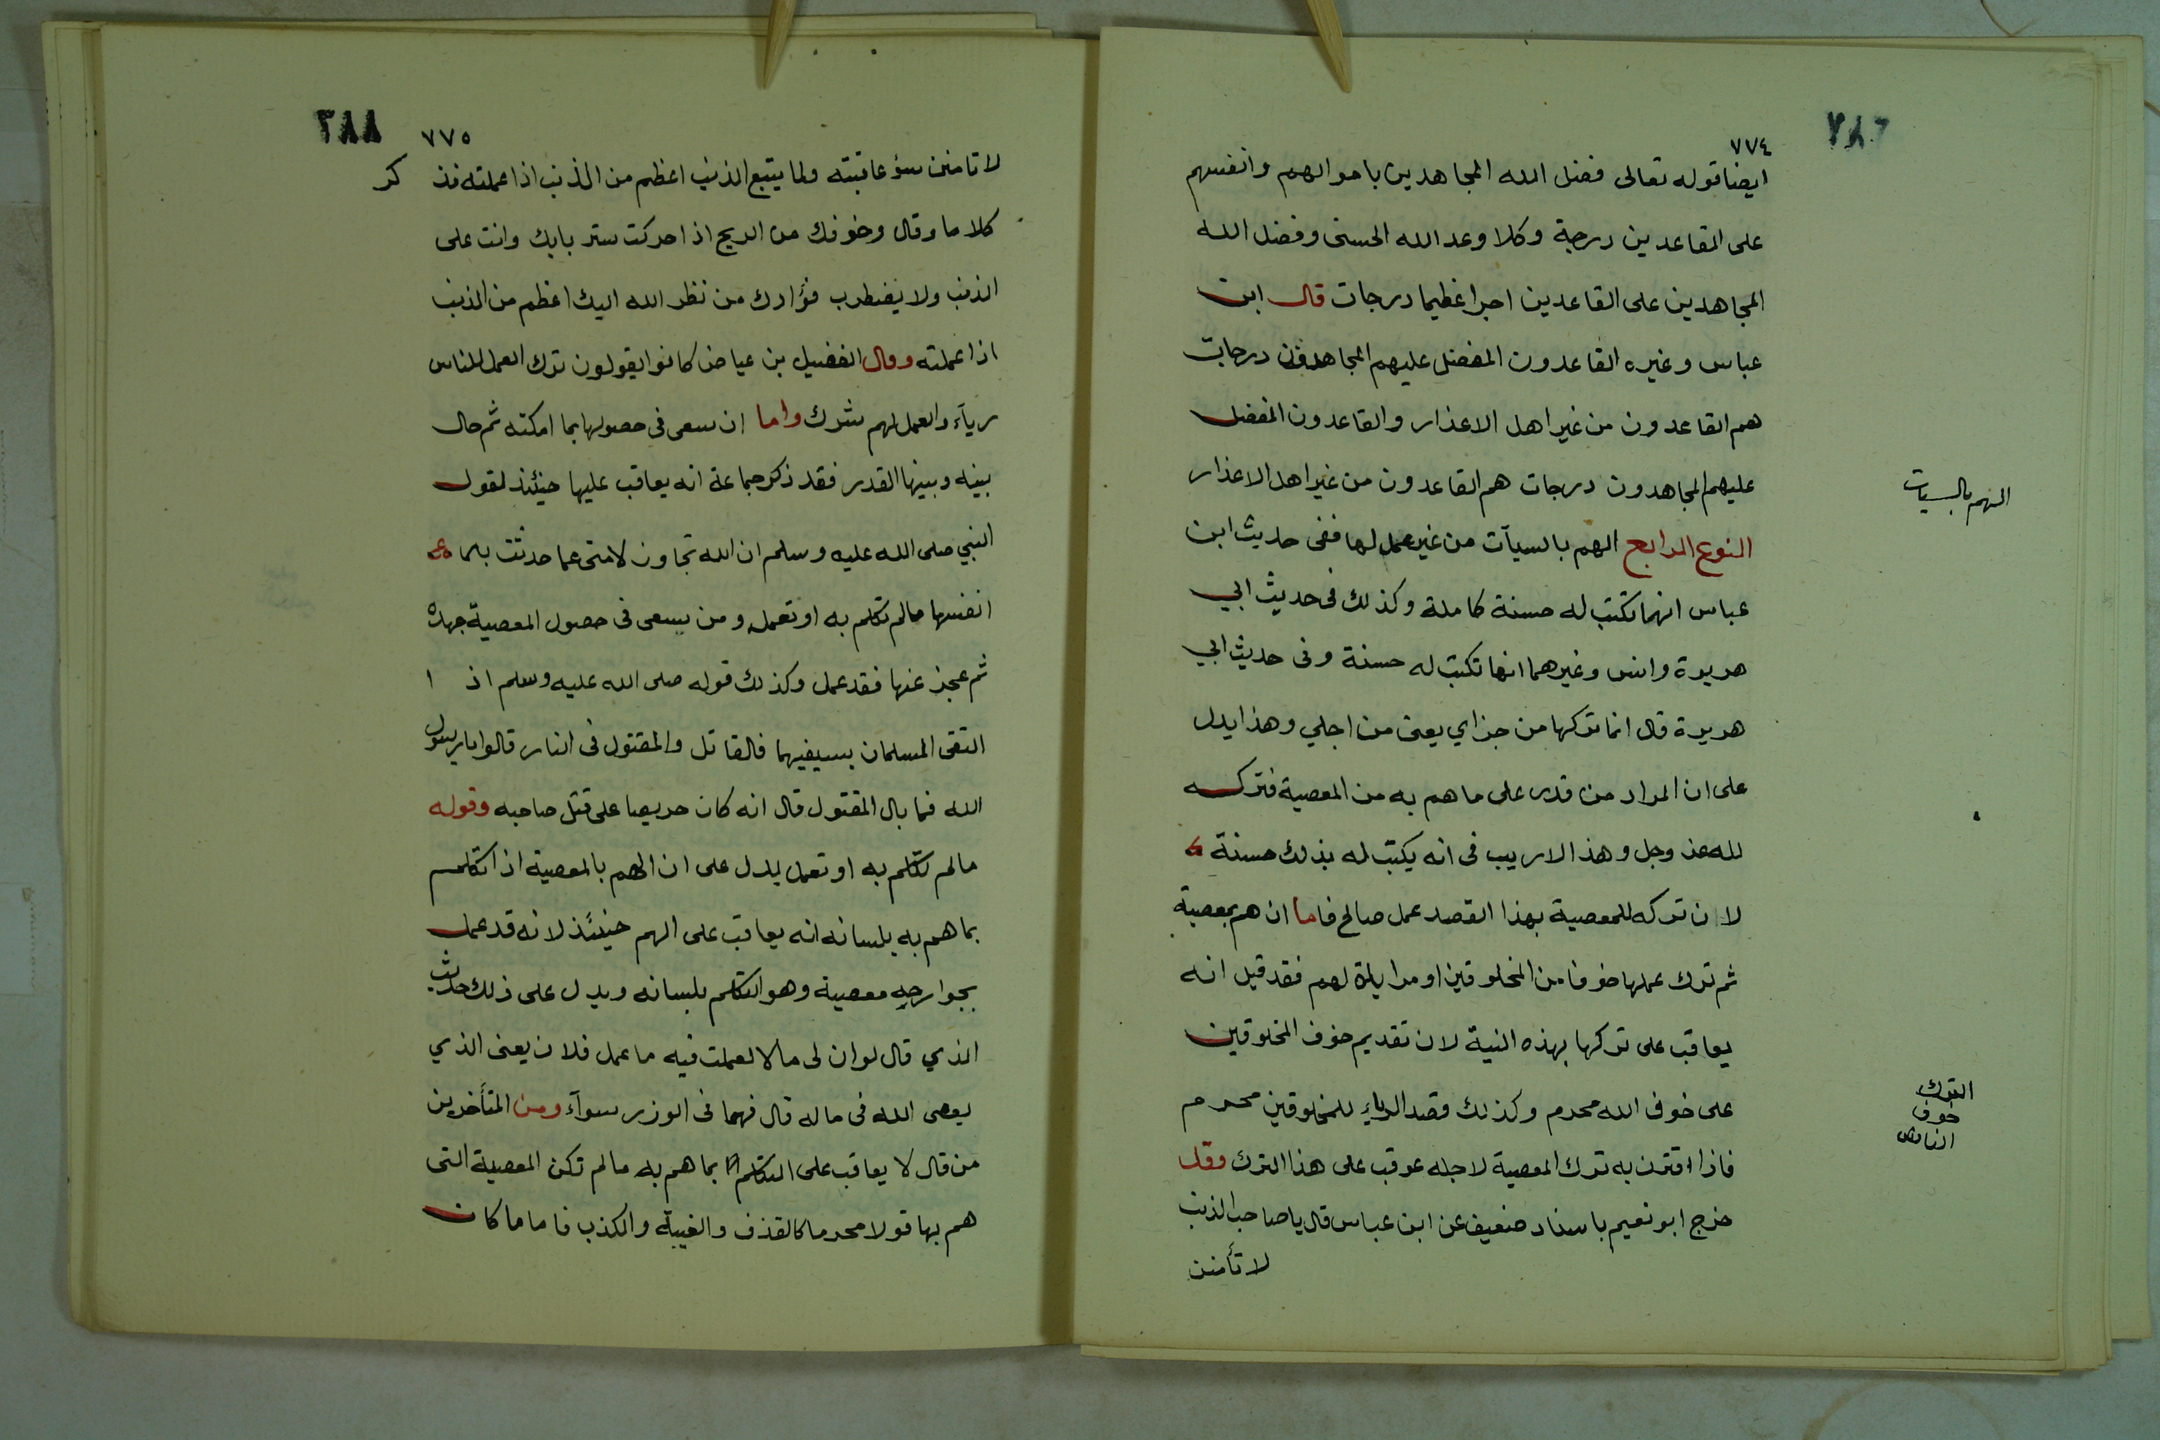 ٧٧٤
ايضا قوله تعالى فضل الله المجاهدين باموالهم وانفسهم
على القاعدين درجة وكلا وعد الله الحسنى وفضل الله
المجاهدين على القاعدين اجرا عظيما درجات قال ابن
عباس وغيره القاعدون المفضل عليهم المجاهدون درجات
هم القاعدون من غير اهل الاعذار والقاعدون المفضل
عليهم المجاهدون درجات هم القاعدون من غير اهل الاعذار
النوع الرابع الهم بالسيآت من غير عمل لها ففى حديث ابن
عباس انهما تكتب له حسنة كاملة وكذلك فى حديث ابي
هريرة وانس وغيرهما انها تكتب له حسنة وفى حديث ابي
هريرة قال انما تركها من جزاي يعنى من اجلي وهذا يدل
على ان المراد من قدر على ما هم به من المعصية فتركه
لله عز وجل وهذا لا ريب فى انه يكتب له بذلك حسنة
لان تركه للمعصية بهذا القصد عمل صالح فاما ان هم بمعصية
ثم ترك عملها خوفا من المخلوقين او مرايلة لهم فقد قيل انه
يعاقب على تركها بهذه النية لان تقديم خوف المخلوقين
على خوف الله محرم وكذلك قصد الرياء للمخلوقين محرم
فاذا اقترن به ترك المعصية لاجله عوقب على هذا الترك وقد
خرج ابو نعيم باسناد ضعيف عن ابن عباس قال يا صاحب الذنب
لا تأمنن
الهم بالسيات
الترك
خوف
الناس
٣٨٨
٧٧٥
لا تامنن سوء عاقبته ولما يتبع الذنب اعظم من الذنب اذا عملته فذ كر
كلاما وقال وخوفك من الريح اذا حركت ستر بابك وانت على
الذنب ولا يضطرب فؤادك من نظر الله اليك اعظم من الذنب
اذا عملته وقال الفضيل بن عياض كانوا يقولون ترك العمل للناس
رياء والعمل لهم شرك واما ان سعى فى حصولها بما امكنه ثم حال
بينه وبينها القدر فقد ذكر جماعة انه يعاقب عليها حينئذ لقول
النبي صلى الله عليه وسلم ان الله تجاوز لامتى عما حدثت به
انفسها مالم تكلم به او تعمل ومن سعى فى حصول المعصية جهده
ثم عجز عنها فقد عمل وكذلك قوله صلى الله عليه وسلم اذ ا
التقى المسلمان بسيفيهما فالقاتل والمقتول فى النار قالوا يا رسول
الله فما بال المقتول قال انه كان حريصا على قتل صاحبه وقوله
مالم تتكلم به او تعمل يدل على ان الهم بالمعصية اذا تكلم
بما هم به بلسانه انه يعاقب على الهم حينئذ لانه قد عمل
بجوارحه معصية وهو التكلم بلسانه ويدل على ذلك حديث
الذي قال لو ان لى مالا لعملت فيه ما عمل فلان يعنى الذي
يعصى الله فى ماله قال فهما فى الوزر سوآء ومن المتأخرين
من قال لا يعاقب على التكلم بما هم به مالم تكن المعصية التى
هم بها قولا محرما كالقذف والغيبة والكذب فاما ما كان